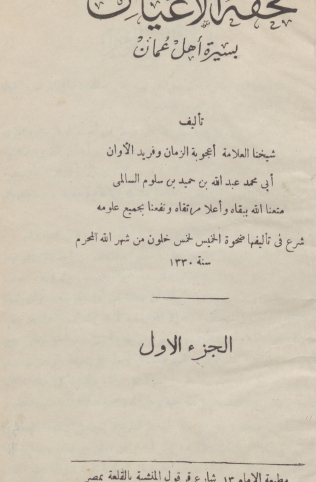 تحفة الأعيان
بسيرة أهل عُمان
تأليف
شيخنا العلامة أعجوبة الزمان وفريد الأوان
أبي محمد عبد الله بن حميد بن سلوم السالمى
متعنا الله ببقاه وأعلا مرتقاه ونفعنا بجميع علومه
شرع فى تأليفها ضحوة الخميس لخمس خلون من شهر الله المحرم
سنة ١٣٣٠
الجزء الاول
مطبعة الامام ١٣ شارع قرقول المنشية بالقلعة بمصر